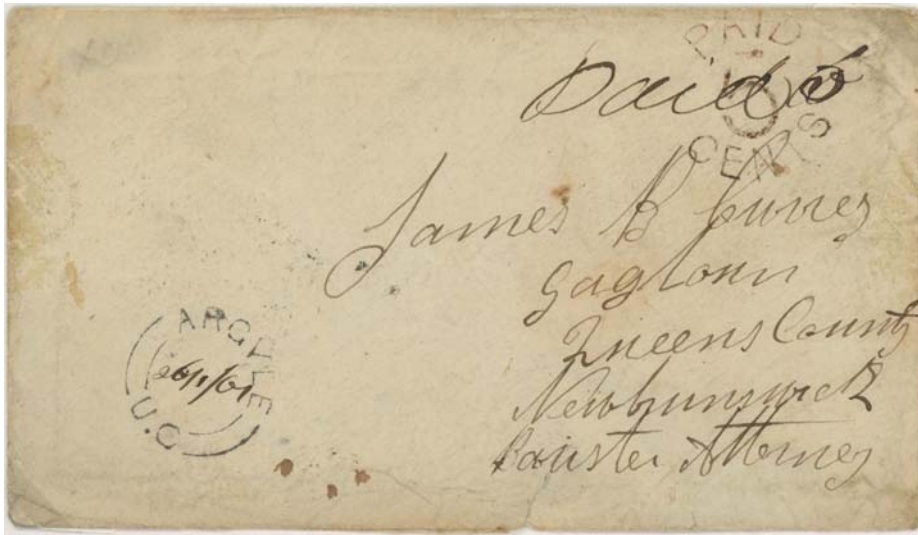 PAID
5
CENTS
Paid 5
James B Currey
Gagtown
Queens County
Newbrunswick
Barister Attorney
ARGYLE
26/1/61
U.C